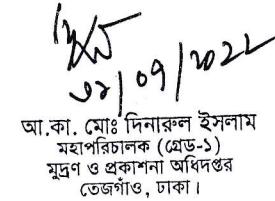 ০৭/০৭/২০২২
আ.কা. মোঃ দিনারুল ইসলাম
মহাপরিচালক (গ্রেড-১)
মুদ্রণ ও প্রকাশনা অধিদপ্তর
তেজগাঁও, ঢাকা।